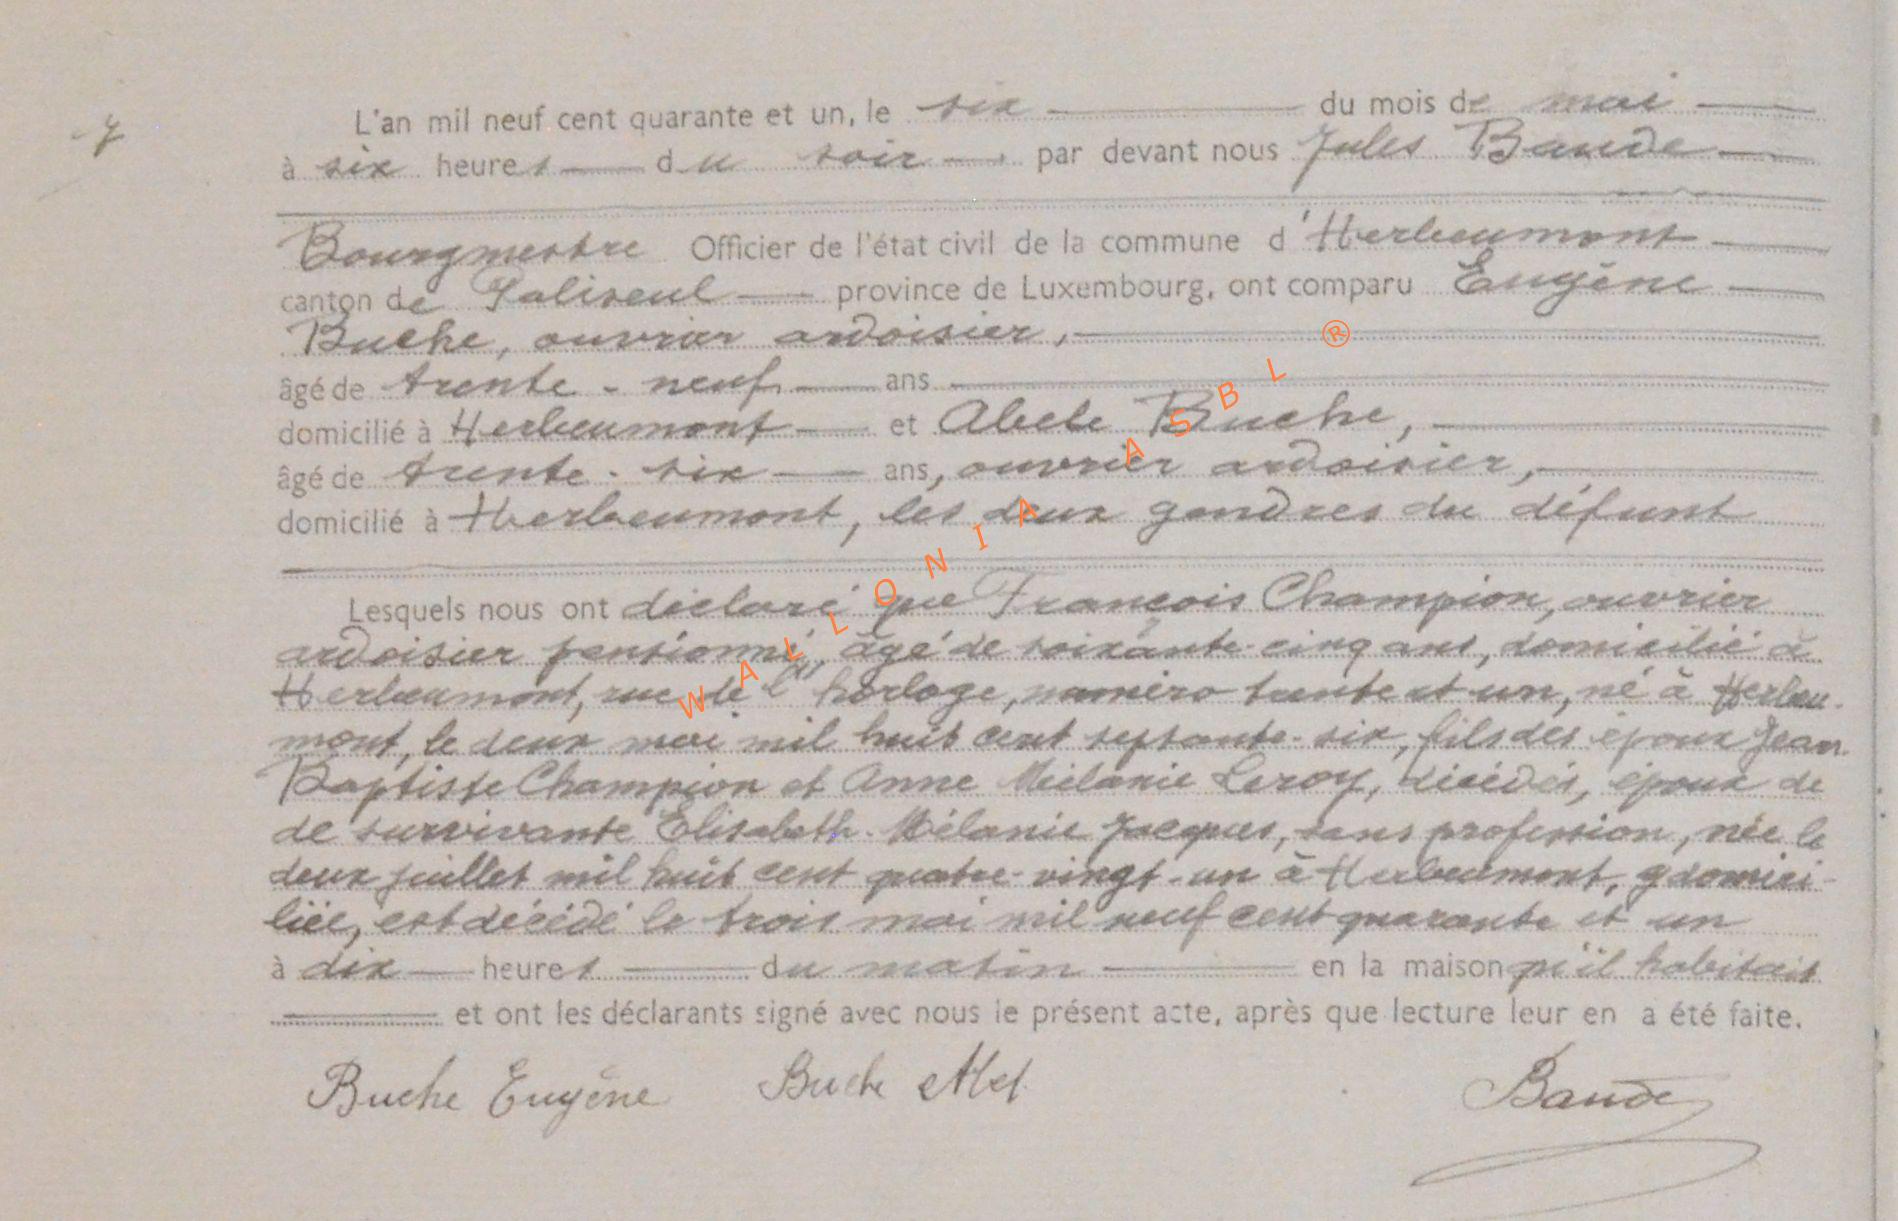 7
L'an mil neuf cent quarante et un, le six du mois de mai
à six heures du soir par devant nous Jules Baude
Bourgmestre Officier de l'état civil de la commune d'Herbeumont
canton de Paliseul province de Luxembourg, ont comparu Eugène
Buche, ouvrier ardoisier,
âgé de trente-neuf ans
domicilié à Herbeumont et Abele Buche,
âgé de trente-six ans, ouvrier ardoisier,
domicilié à Herbeumont, les deux gendres du défunt
Lesquels nous ont déclaré que François Champion, ouvrier
ardoisier pensionné, âgé de soixante-cinq ans, domicilié à
Herbeumont, rue de l'horloge, numéro trente et un, né à Herbeu-
mont, le deux mai mil huit cent septante-six, fils des époux Jean-
Baptiste Champion et Anne Mélanie Leroy, décédés, époux de
de survivante Elisabeth-Mélanie Jacques, sans profession, née le
deux juillet mil huit cent quatre-vingt-un à Herbeumont, y domici-
liée, est décédé le trois mai mil neuf cent quarante et un
à dix heures du matin en la maison qu'il habitait
et ont les déclarants signé avec nous le présent acte, après que lecture leur en a été faite.
Buche Eugène Buche Abel Baude
WALLONIA ASBL ®